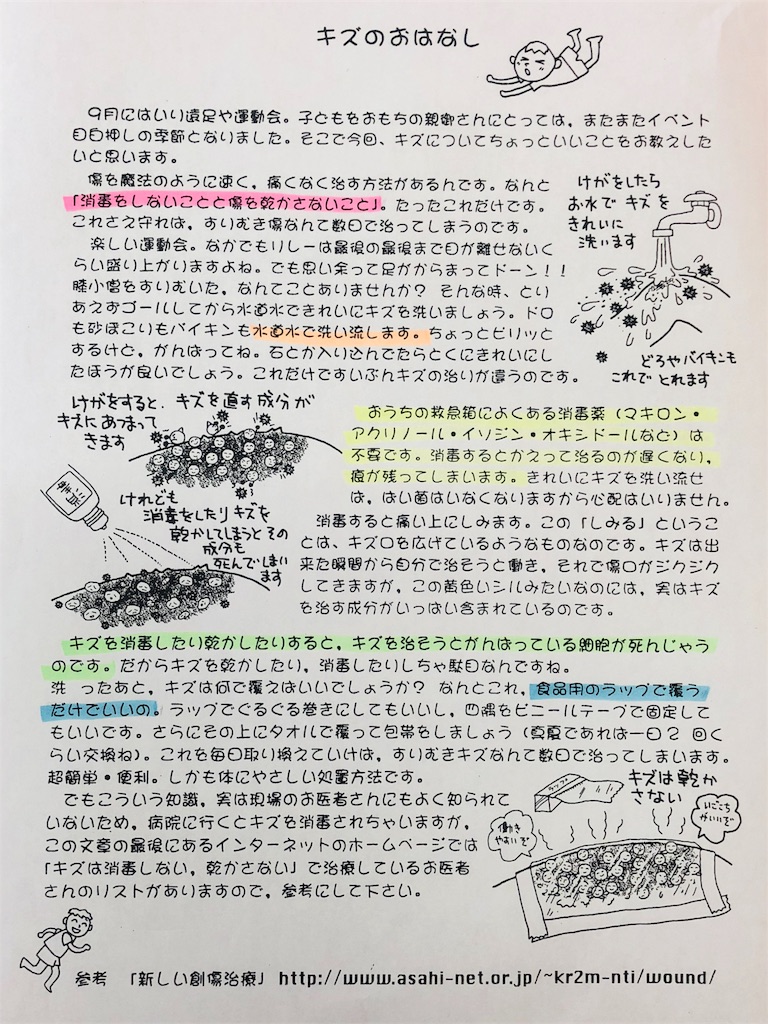 キズのおはなし
9月にはいり遠足や運動会。子どもをおもちの親御さんにとっては，またまたイベント
目白押しの季節となりました。そこで今回、キズについてちょっといいことをお教えした
いと思います。
傷を魔法のように速く，痛くなく治す方法があるんです。なんと
「消毒をしないことと傷を乾かさないこと」。たったこれだけです。
これさえ守れば，すりむき傷なんて数日で治ってしまうのです。
楽しい運動会。なかでもリレーは最後の最後まで目が離せないく
らい盛り上がりますよね。でも思い余って足がからまってドーン！！
膝小僧をすりむいた，なんてことありませんか？ そんな時、とり
あえずゴールしてから水道水できれいにキズを洗いましょう。ドロ
も砂ぼこりもバイキンも水道水で洗い流します。ちょっとピリッと
するけど，がんばってね。石とか入り込んでたらとくにきれいにし
たほうが良いでしょう。これだけでずいぶんキズの治りが違うのです。
けがをしたら
お水でキズを
きれいに
洗います
どろやバイキンも
これでとれます
けがをすると、キズを直す成分が
キズにあつまって
きます
消毒
けれども
消毒をしたりキズを
乾かしてしまうとその
成分も
死んでしまい
ます
おうちの救急箱によくある消毒薬（マキロン・
アクリノール・イソジン・オキシドールなど）は
不要です。消毒するとかえって治るのが遅くなり，
痕が残ってしまいます。きれいにキズを洗い流せ
ば，ばい菌はいなくなりますから心配はいりません。
消毒すると痛い上にしみます。この「しみる」というこ
とは、キズ口を広げているようなものなのです。キズは出
来た瞬間から自分で治そうと働き，それで傷口がジクジク
してきますが，この黄色いシルみたいなのには，実はキズ
を治す成分がいっぱい含まれているのです。
キズを消毒したり乾かしたりすると，キズを治そうとがんばっている細胞が死んじゃう
のです。だからキズを乾かしたり，消毒したりしちゃ駄目なんですね。
洗 ったあと，キズは何で覆えばいいでしょうか？ なんとこれ，食品用のラップで覆う
だけでいいの。ラップでぐるぐる巻きにしてもいいし，四隅をビニールテープで固定して
もいいです。さらにその上にタオルで覆って包帯をしましょう（真夏であれば一日2 回く
らい交換ね）。これを毎日取り換えていけば，すりむきキズなんて数日で治ってしまいます。
超簡単・便利。しかも体にやさしい処置方法です。
でもこういう知識，実は現場のお医者さんにもよく知られて
いないため，病院に行くとキズを消毒されちゃいますが，
この文章の最後にあるインターネットのホームページでは
「キズは消毒しない，乾かさない」で治療しているお医者
さんのリストがありますので，参考にして下さい。
ラップ
キズは乾か
さない
働き
やすいで
いごこち
がいいで
参考 「新しい創傷治療」 http://www.asahi-net.or.jp/~kr2m-nti/wound/